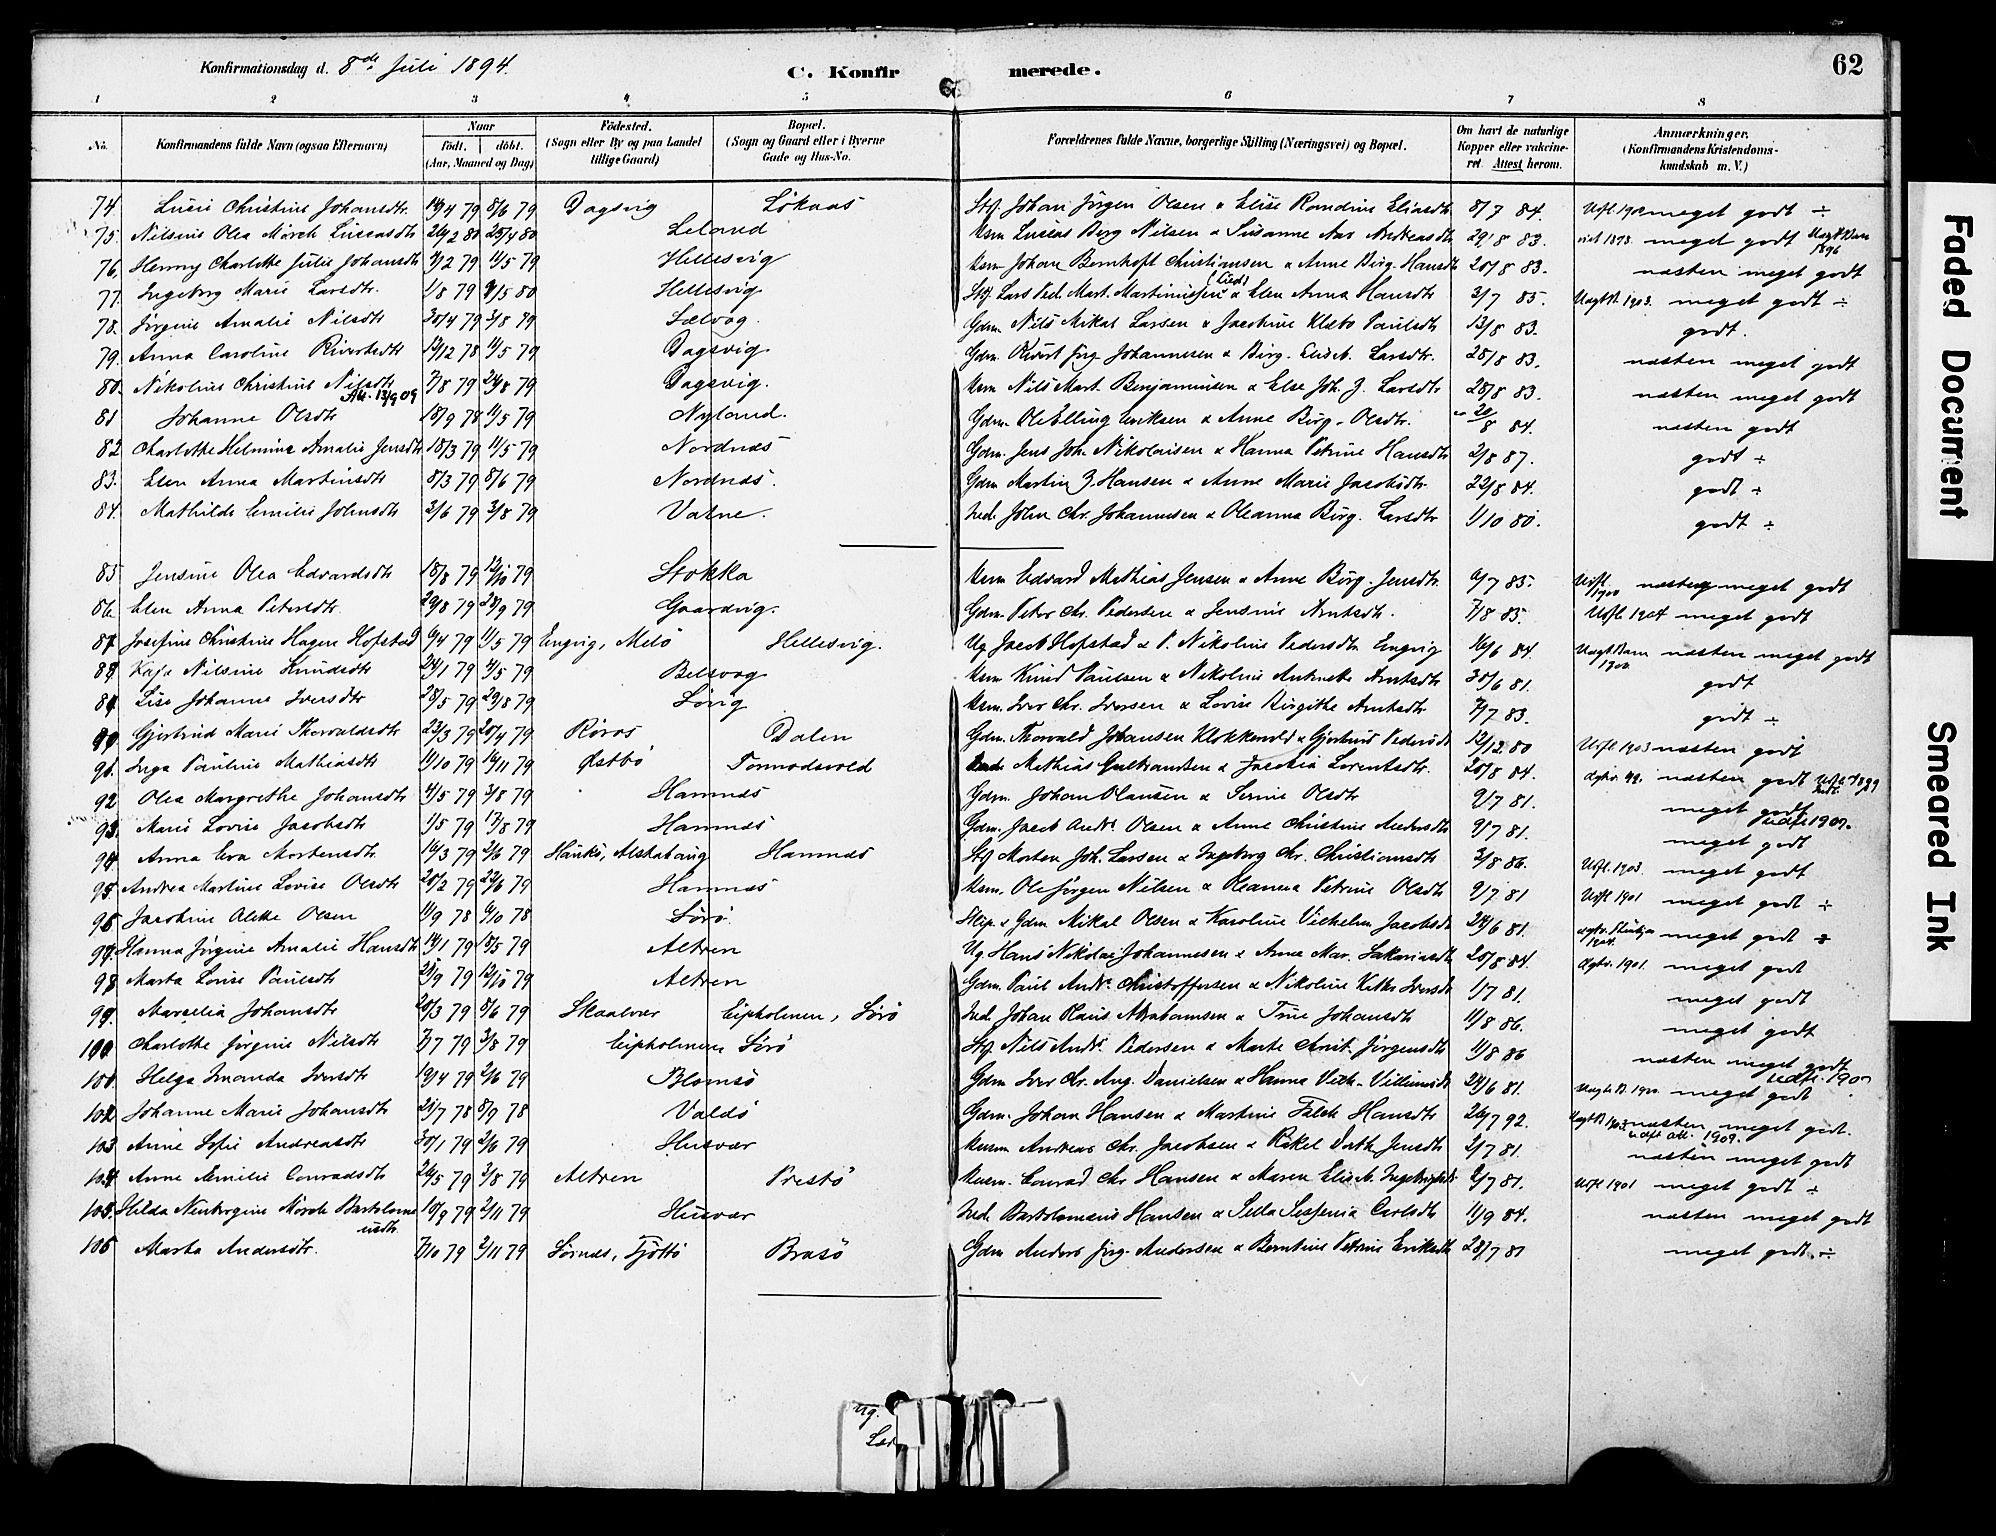 Konfirmationsdag d. 8de Juli 1894.
C. Konfirmerede.
62
1 2 3 4 5 6 7 8
No. Konfirmandens fulde Navn (ogsaa Efternavn) Naar födt. döbt. (Aar, Maaned og Dag) Födested. (Sogn eller By og paa Landet tillige Gaard) Bopæl. (Sogn og Gaard eller i Byerne Gade og Hus-No. Forældrenes fulde Navne, borgerlige Stilling (Næringsvei) og Bopæl. Om havt de naturlige Kopper eller vakcineret. Attest herom. Anmærkninger. (Konfirmandens Kristendomskundskab m. V.)
74 Lucie Christine Johansdtr. 14/4 79 8/6 79 Dagsvig Lökaas Stf. Johan Jörgen Olsen & Elise Randine Eliasdtr 8/7 84. meget godt ÷
75. Nilsine Olea Mörch Lucasdtr 26/2 80 25/4 80 Leland Husm Lucas Berg Nilsen & Susanne Andreasdtr 29/8 83. viet 1898. meget godt
76. Henny Charlotte Julie Johansdtr 4/2 79 11/5 79 Hellesvig Husm Johan Bernhoft Christiansen & Anne Birg. Hansdtr 20/8 83. næsten meget godt
77. Ingeborg Marie Larsdtr. 1/8 79 4/5 80 Hellesvig Stf Lars Ped. Mart. Martinussen & Elen Anna Hansdtr 3/7 85. 1903. meget godt ÷
78. Jörgine Amalie Nilsdtr 30/4 79 3/8 79 Sælvog. Gdm. Nils Mikal Larsen & Jacobine Klæbo Paulsdtr 13/8 83. godt.
79. Anna Caroline Rivertsdtr 14/12 78 11/5 79 Dagsvig Gdm. Rivert Jörg. Johannesen & Birg. Elisab. Larsdtr. 28/8 83. næsten meget godt
80. Nikoline Christine Nilsdtr 7/8 79 24/8 79 Dagsvig. Husm Nils Mart. Benjaminsen & Else Joh. J. Larsdtr 28/8 83. næsten meget godt
Att. 13/9 09
81 Johanne Olsdtr 18/9 78 11/5 79 Nyland. Gdm. Ole Elling Eriksen & Anne Birg. Olsdtr. 20/8 84. næsten godt
82 Charlotte Helmine Amalie Jensdtr 18/3 79 11/5 79 Nordnæs Gdm. Jens Joh. Nikolaisen & Hanna Petrine Hansdtr 2/8 87. godt ÷
83. Elen Anna Martinsdtr 8/3 79 8/6 79 Nordnæs. Gdm Martin J. Hansen & Anne Marie Jacobsdtr. 22/8 84. godt ÷
84. Mathilde Emilie Johnsdtr 2/6 79 3/8 79 Vatne. Ind. John Chr. Johannesen & Oleanna Birg. Larsdtr 1/10 80. godt ÷
85 Jensine Olea Edvardsdtr 18/8 79 12/10 79 Stokka Husm Edvard Mathias Jensen & Anne Birg. Jensdtr. 6/7 85. Udfl. 1900 næsten meget godt
86. Elen Anna Petersdtr. 29/8 79 28/9 79 Gaardvig. Gdm. Peter Chr. Pedersen & Jensine Arntsdtr. 7/8 85. Udfl. 1904 meget godt
87 Josefine Christine Hagen Hofstad 6/4 79 11/5 79 Engvig, Melö Hellesvig. Ug Jacob Hofstad & P. Nikoline Pedersdtr Engvig 16/6 84. næsten meget godt
88 Kaja Nilsine Knudsdtr 24/1 79 4/5 79 Belsvog Husm Knud Paulsen & Nikoline Antonette Arntsdtr 30/6 81. godt
89 Lise Johanne Iversdtr 28/5 79 29/8 79 Sövig Husm. Iver Chr. Iversen & Lovise Birgithe Arntsdtr 7/7 83. godt ÷
90 Gjertrud Marie Thorvaldsdtr 23/3 79 20/4 79 Röros Dalen Gdm. Thorvald Johansen Klokkervold & Gjertrud Pedersdtr 12/12 80 Udfl. 1903 næsten godt
91. Inga Pauline Mathiasdtr 11/10 79 16/11 79 Östbö Formodsvold Mathias Gulbrandsen & Jacobia Lorentsdtr. 20/8 84. næsten godt
92 Olea Margrethe Johansdtr 4/5 79 3/8 79 Hamnæs Gdm. Johan Olausen & Serine Olsdtr 9/7 81. meget godt
93. Marie Lovise Jacobsdtr 1/5 79 17/8 79 Hamnæs Gdm. Jacob Andr. Olsen & Anne Christine Andersdtr 9/7 81. Udfl 1907. meget godt
94 Anna Eva Mortensdtr 14/3 79 2/6 79 Alstahaug Hamnæs Stf Morten Joh. Larsen & Ingeborg Chr. Christiansdtr 3/8 86. Udfl. 1903. meget godt
95 Andrea Martine Lovise Olsdtr 20/2 79 22/6 79 Hamnæs Husm. Ole Jörgen Nilsen & Oleanna Petrine Olsdtr 9/7 81 Udfl 1901 meget godt ÷
96 Jacobine Aletta Olsen 11/9 78 6/10 78 Sörö Skip. & Gdm Mikal Olsen & Karoline Vilhelm. Jacobsdtr 24/6 81. meget godt ÷
97 Hanna Jörgine Amalie Hansdtr 14/1 79 18/5 79 Altren Ug. Hans Nikolai Johannesen & Anne Mar. Zakariasdtr 20/8 84. 1901. meget godt
98 Marta Lovise Paulsdtr 21/9 79 12/10 79 Altren Gdm. Paul Andr. Christoffersen & Nikoline Iversdtr 1/7 81. meget godt
99. Marselia Johansdtr 20/3 79 8/6 79 Skaalvær Eipholmen, Sörö Ind. Johan Klaus Abrahamsen & Trine Johansdtr 11/8 86. meget godt
100 Charlotte Jörgine Nilsdtr 7/7 79 3/8 79 Eipholmen Sörö Stf Nils Andr. Pedersen & Marte Christ. Jörgensdtr 11/8 86 næsten meget godt
101. Helga Imanda Iversdtr 19/4 79 2/6 79 Blomsö Gdm Iver Chr. Aug. Danielsen & Hanna Vilh. Villumsdtr 24/6 81. meget godt
102 Johanne Marie Johansdtr 21/7 78 8/9 78 Valdö Gdm. Johan Hansen & Martine Falch Hansdtr 26/7 92. næsten meget godt.
udfl. att. 1909.
103 Anne Sofie Andreasdtr 30/1 79 2/6 79 Husvær Husm Andreas Chr. Jacobsen & Rakel Jensdtr 2/7 81. næsten meget godt
104 Anne Emilie Conradsdtr 26/5 79 3/8 79 Altren Prestö Husm. Conrad Chr Hansen & Maren Elisab. 2/7 81. Udfl 1901 meget godt ÷
105. Hilda Nenbergine Mörch Bartolomeusdtr 10/9 79 2/11 79 Husvær Ind. Bartolomæus Hansen & Carlsdtr 11/9 84. næsten meget godt
106 Marta Andersdtr. 7/10 79 2/11 79 Sörnæs, Tjöttö Brasö Gdm Anders Jörg. Andersen & Berntine Petrine Eriksdtr 28/7 81 meget godt. ÷
Faded Document
Smeared Ink